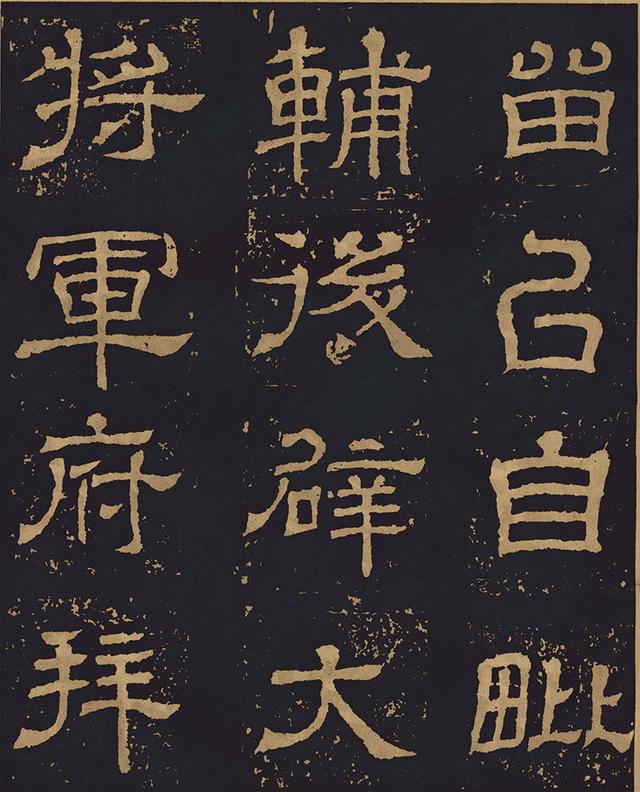 留以自毗
輔後辟大
將軍府拜